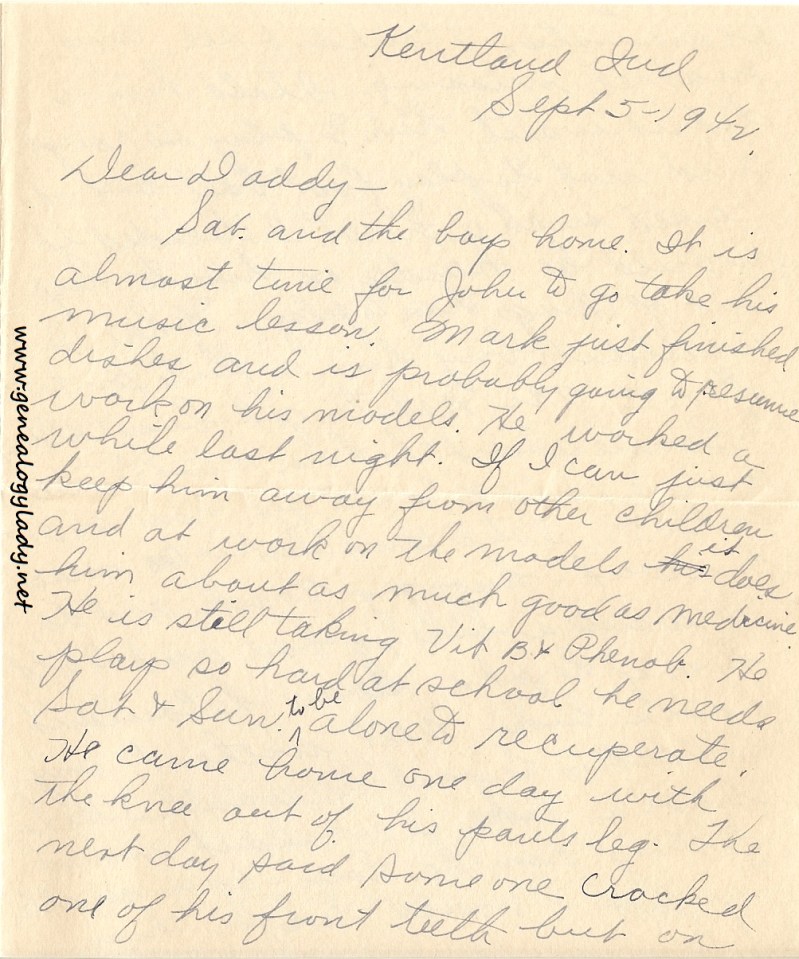 Kentland Ind
Sept 5-1942.
Dear Daddy—
Sat. and the boys home. It is
almost time for John to go take his
music lesson. Mark just finished
dishes and is probably going to resume
work on his models. He worked a
while last night. If I can just
keep him away from other children
and at work on the models his it does
him about as much good as medicine.
He is still taking Vit B & Phenob. He
plays so hard at school he needs
Sat & Sun. to be alone to recuperate.
He came home one day with
the knee out of his pants leg. The
next day said someone cracked
one of his front teeth but on
www.genealogylady.net